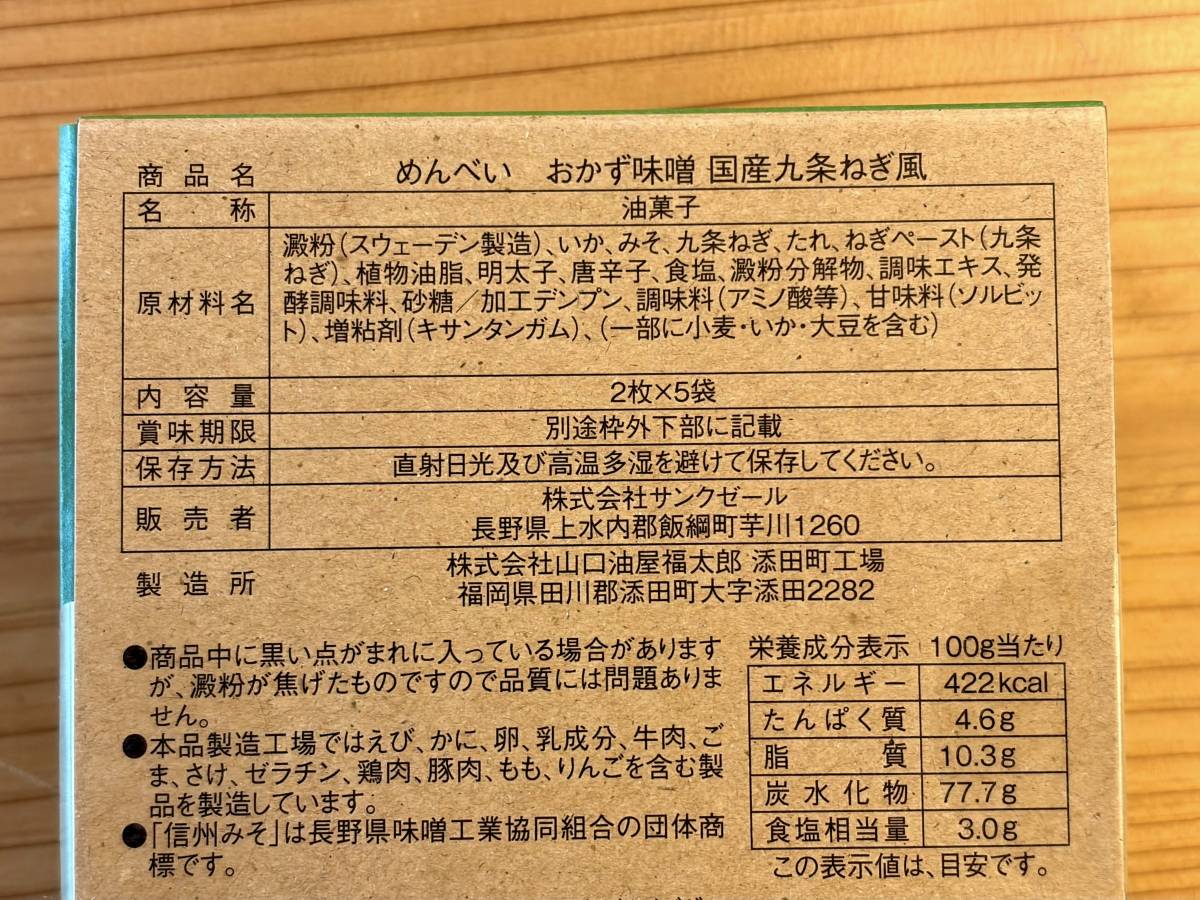 商品名 めんべい おかず味噌 国産九条ねぎ風
名称 油菓子
原材料名
澱粉(スウェーデン製造)、いか、みそ、九条ねぎ、たれ、ねぎペースト(九条
ねぎ)、植物油脂、明太子、唐辛子、食塩、澱粉分解物、調味エキス、発
酵調味料、砂糖/加工デンプン、調味料(アミノ酸等)、甘味料(ソルビッ
ト)、増粘剤(キサンタンガム)、(一部に小麦・いか・大豆を含む)
内容量 2枚×5袋
賞味期限 別途枠外下部に記載
保存方法 直射日光及び高温多湿を避けて保存してください。
販売者 株式会社サンクゼール
長野県上水内郡飯綱町芋川1260
製造所 株式会社山口油屋福太郎 添田町工場
福岡県田川郡添田町大字添田2282
●商品中に黒い点がまれに入っている場合があります
が、澱粉が焦げたものですので品質には問題ありま
せん。
●本品製造工場ではえび、かに、卵、乳成分、牛肉、ご
ま、さけ、ゼラチン、鶏肉、豚肉、もも、りんごを含む製
品を製造しています。
●「信州みそ」は長野県味噌工業協同組合の団体商
標です。
栄養成分表示 100g当たり
エネルギー 422kcal
たんぱく質 4.6g
脂質 10.3g
炭水化物 77.7g
食塩相当量 3.0g
この表示値は、目安です。